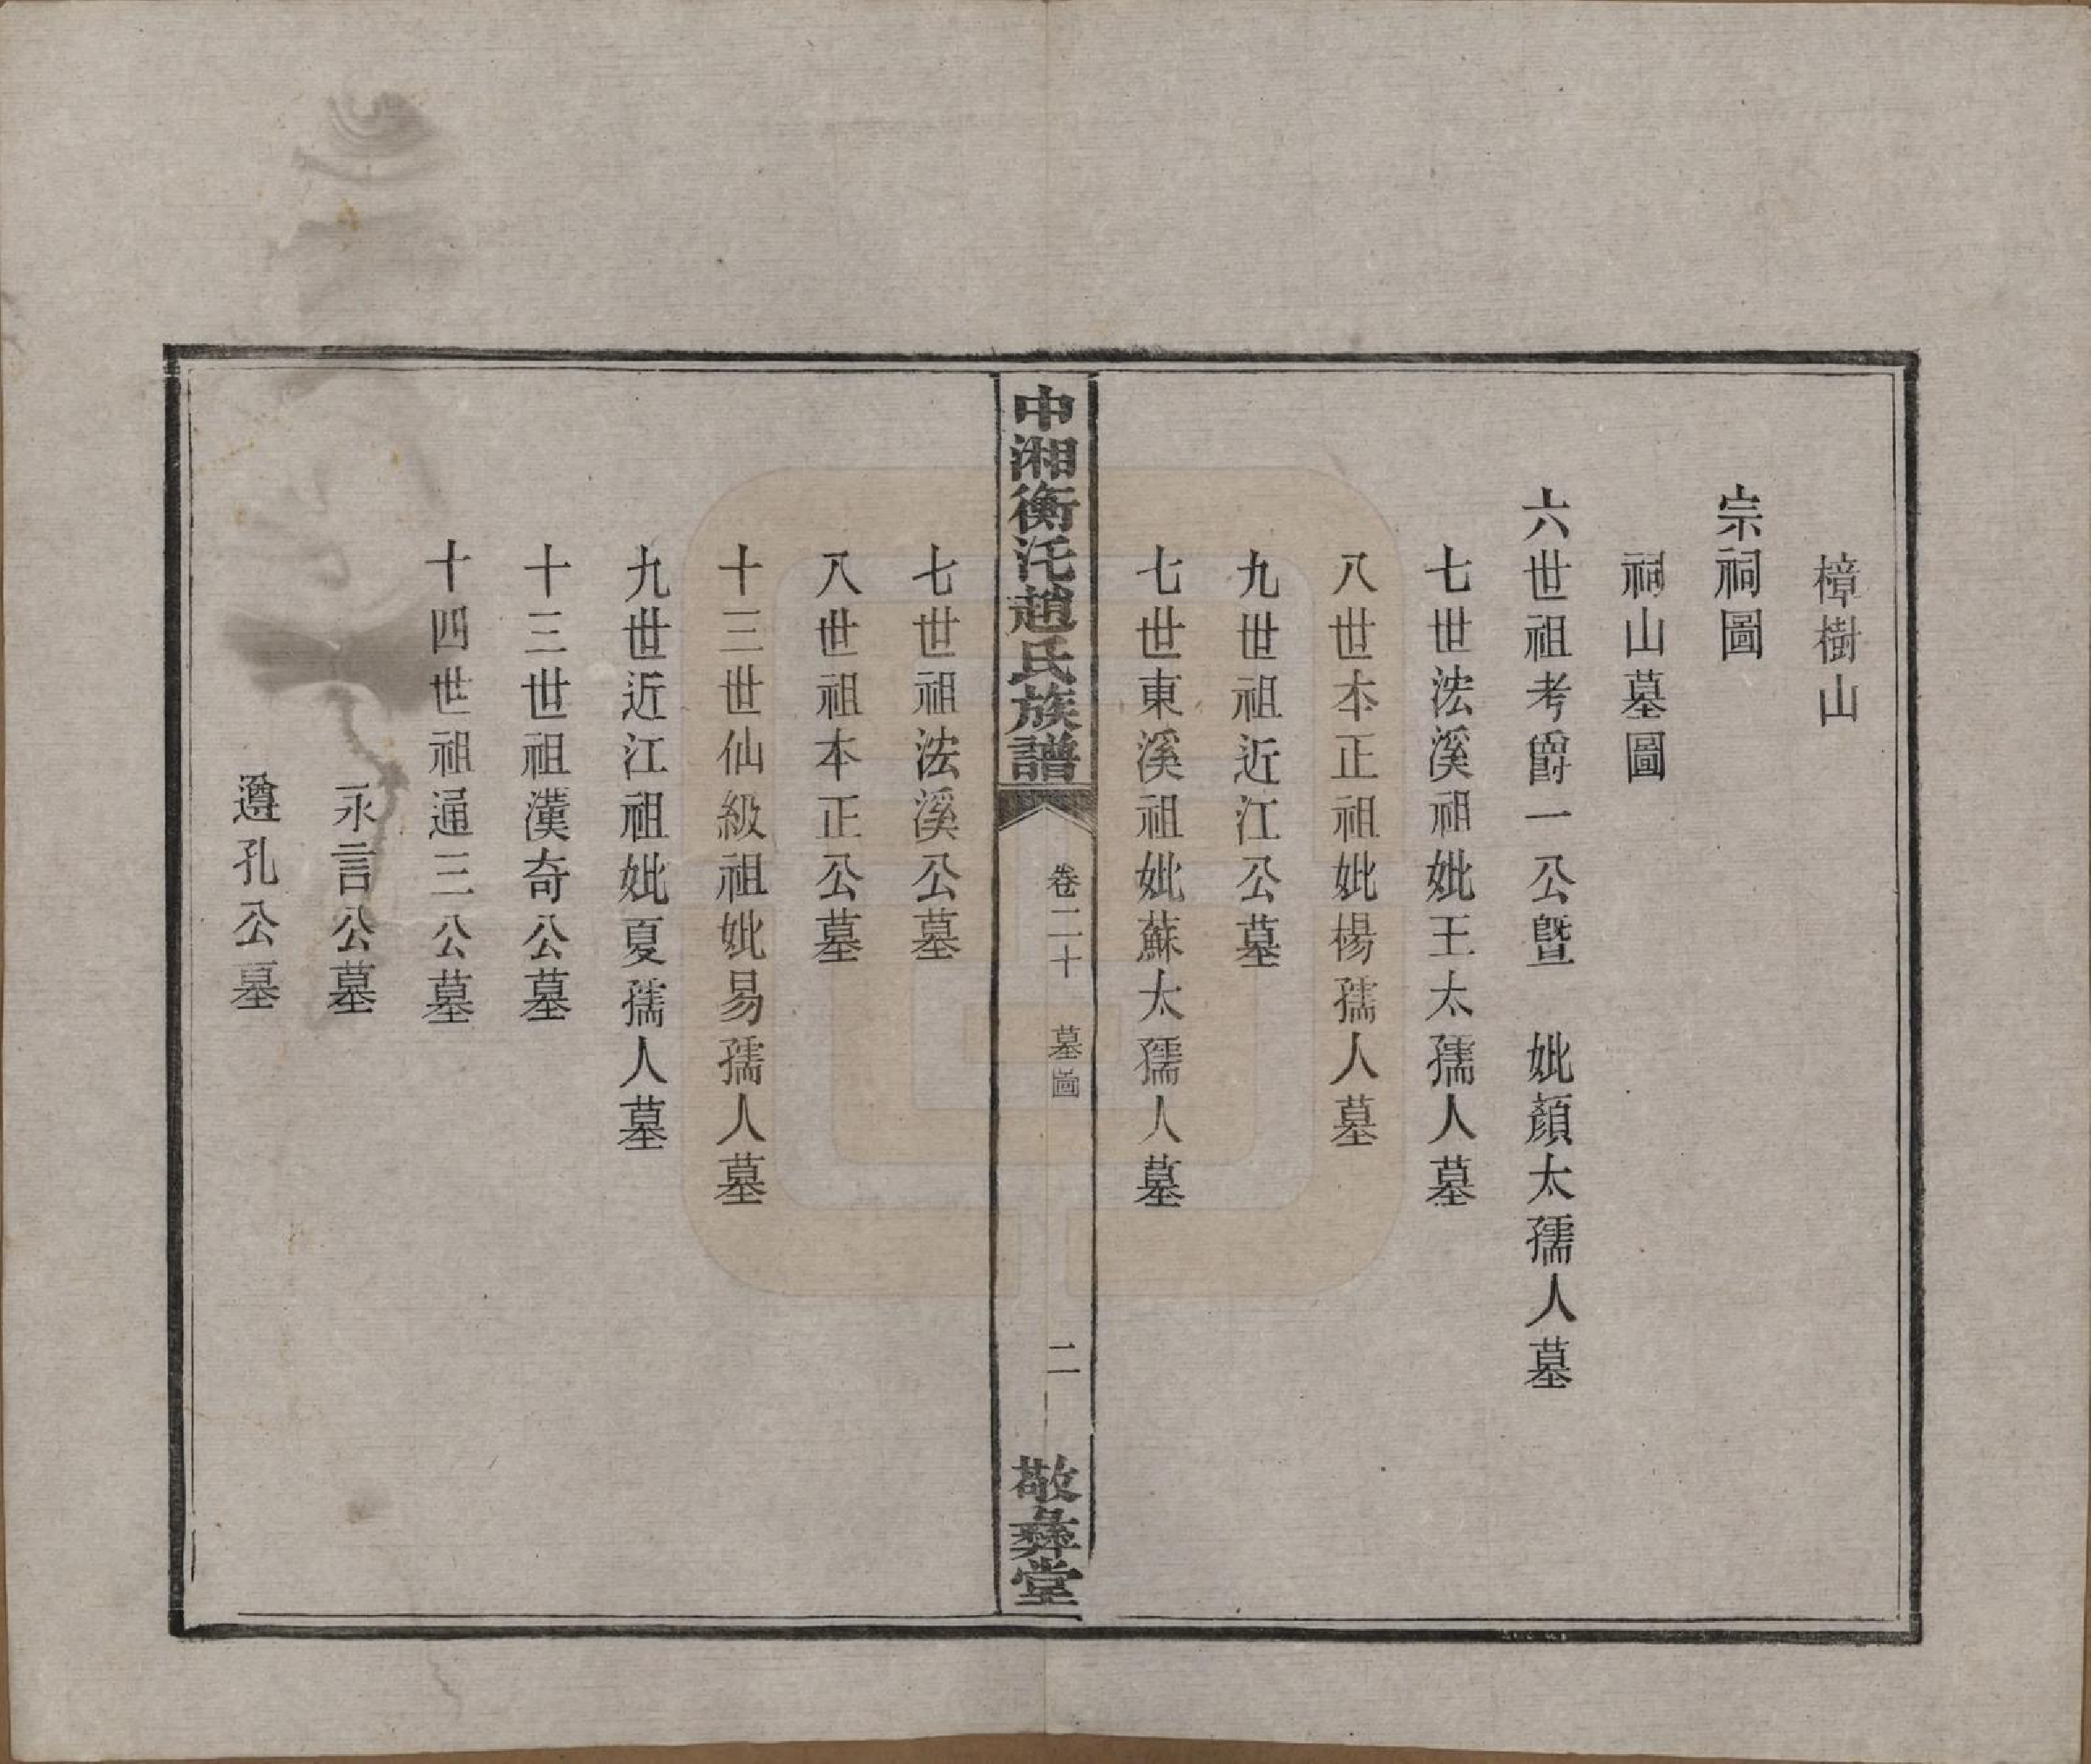 樟樹山
宗祠圖
祠山墓圖
六世祖考爵一公曁　妣顏太孺人墓
七世法溪祖妣王太孺人墓
八世本正祖妣楊孺人墓
九世祖近江公墓
七世東溪祖妣蘇太孺人墓
中湘衡汑趙氏族譜
卷二十　墓圖
二
敬彝堂
七世祖法溪公墓
八世祖本正公墓
十三世仙級祖妣易孺人墓
九世近江祖妣夏孺人墓
十三世祖漢奇公墓
十四世祖通三公墓
永言公墓
遵孔公墓